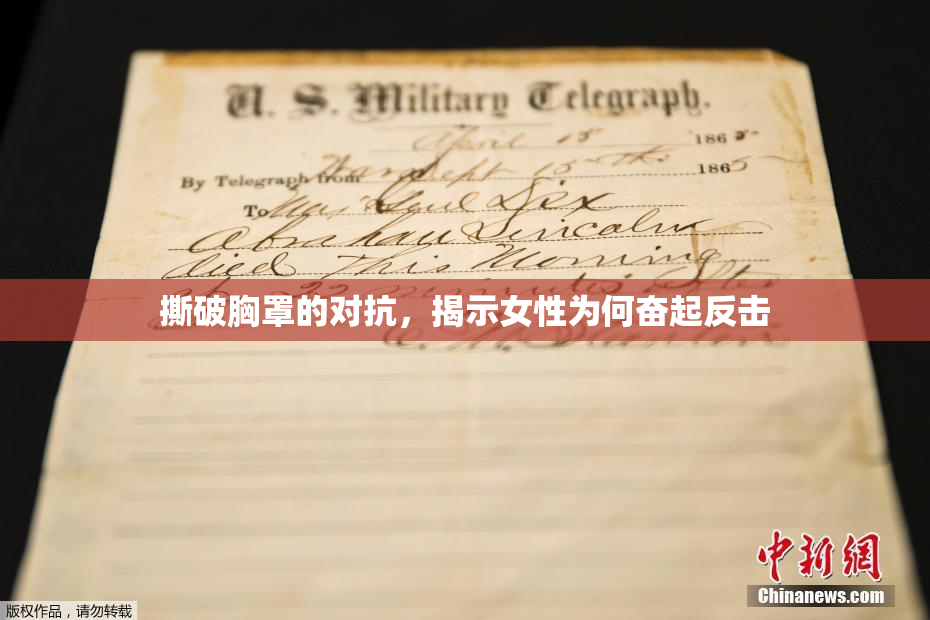 U. S. Military Telegraph.
April 15 1865
By Telegraph from War Dept 15th 1865
To Maj Genl Dix
Abraham Lincoln
died This Morning
at 22 minutes after
撕破胸罩的对抗，揭示女性为何奋起反击
E. M. Stanton
中新网
Chinanews.com
版权作品，请勿转载